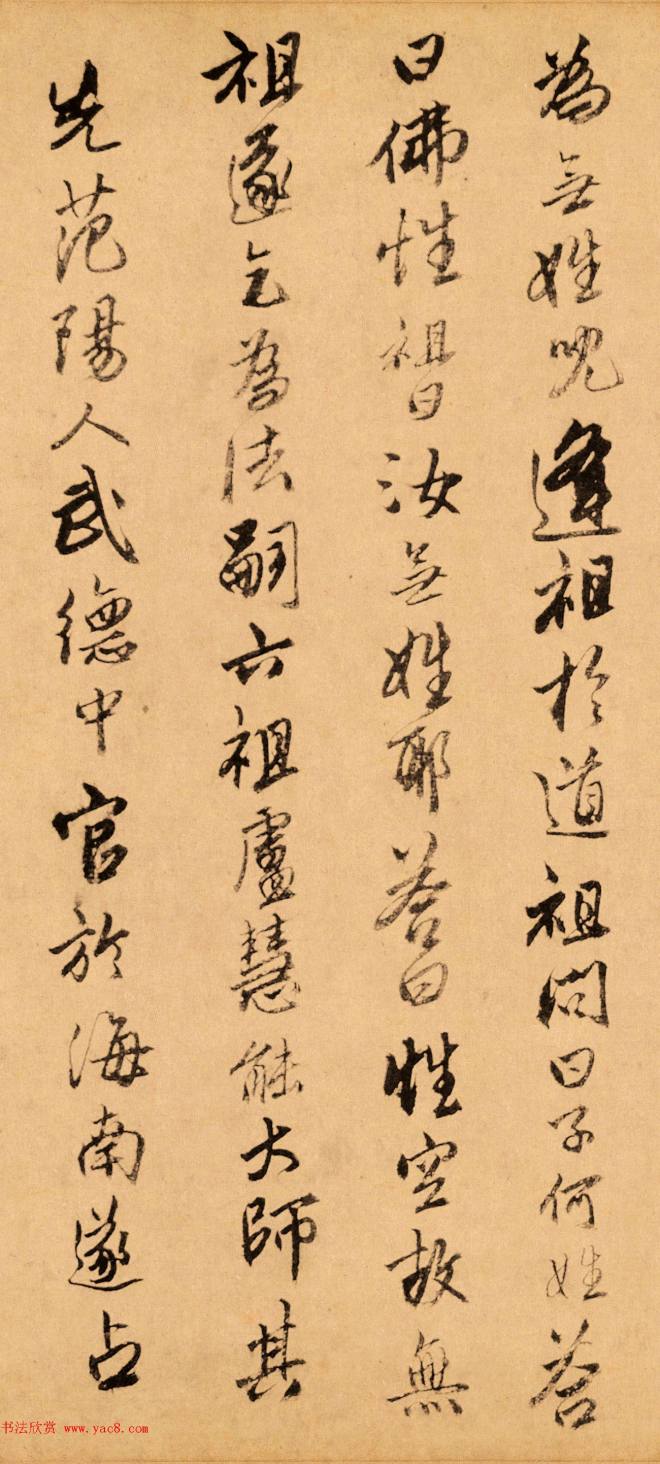 為無姓兒逢祖於道祖問曰子何姓荅
曰佛性祖曰汝無姓耶荅曰性空故無
祖遂乞為法嗣六祖盧慧能大師其
先范陽人武德中官於海南遂占
书法欣赏 www.yac8.com